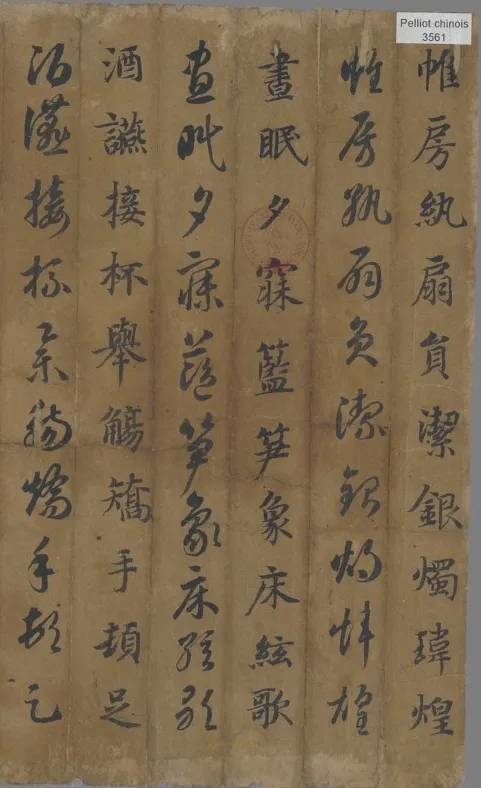 Pelliot chinois
3561
帷房紈扇員潔銀燭瑋煌
帷房紈扇員潔銀燭煒煌
晝眠夕寐籃笋象床絃歌
晝眠夕寐藍笋象床絃歌
酒讌接杯舉觴矯手頓足
酒讌接杯舉觴矯手頓足